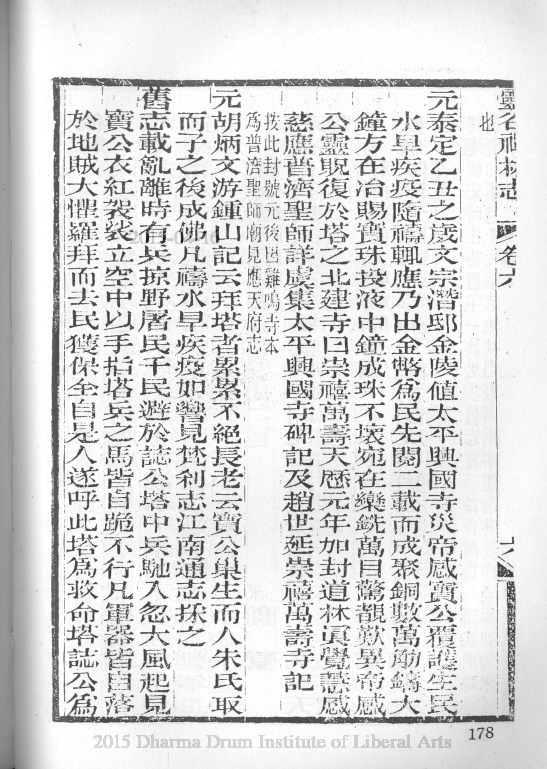 靈谷禪林志 卷六 六
也
元泰定乙丑之歲文宗潛邸金陵值太平興國寺災帝感寶公覆護生民
水旱疾疫隨禱輒應乃出金幣爲民先閱二載而成聚銅數萬觔鑄大
鐘方在冶賜寶珠投液中鐘成珠不壞宛在欒銑萬目驚覩歎異帝感
公靈貺復於塔之北建寺曰崇禧萬壽天歷元年加封道林眞覺慧感
慈應普濟聖師詳虞集太平興國寺碑記及趙世延崇禧萬壽寺記
按此封號元後因雞鳴寺本
爲普濟聖師廟見應天府志
元胡炳文游鍾山記云拜塔者累累不絕長老云寶公巢生而人朱氏取
而子之後成佛凡禱水旱疾疫如響見梵刹志江南通志採之
舊志載亂離時有兵掠野屠民千民避於誌公塔中兵馳入忽大風起見
寶公衣紅袈裟立空中以手指塔兵之馬皆自跪不行凡軍器皆自落
於地賊大懼羅拜而去民獲保全自是人遂呼此塔爲救命塔誌公爲
178
2015 Dharma Drum Institute of Liberal Arts